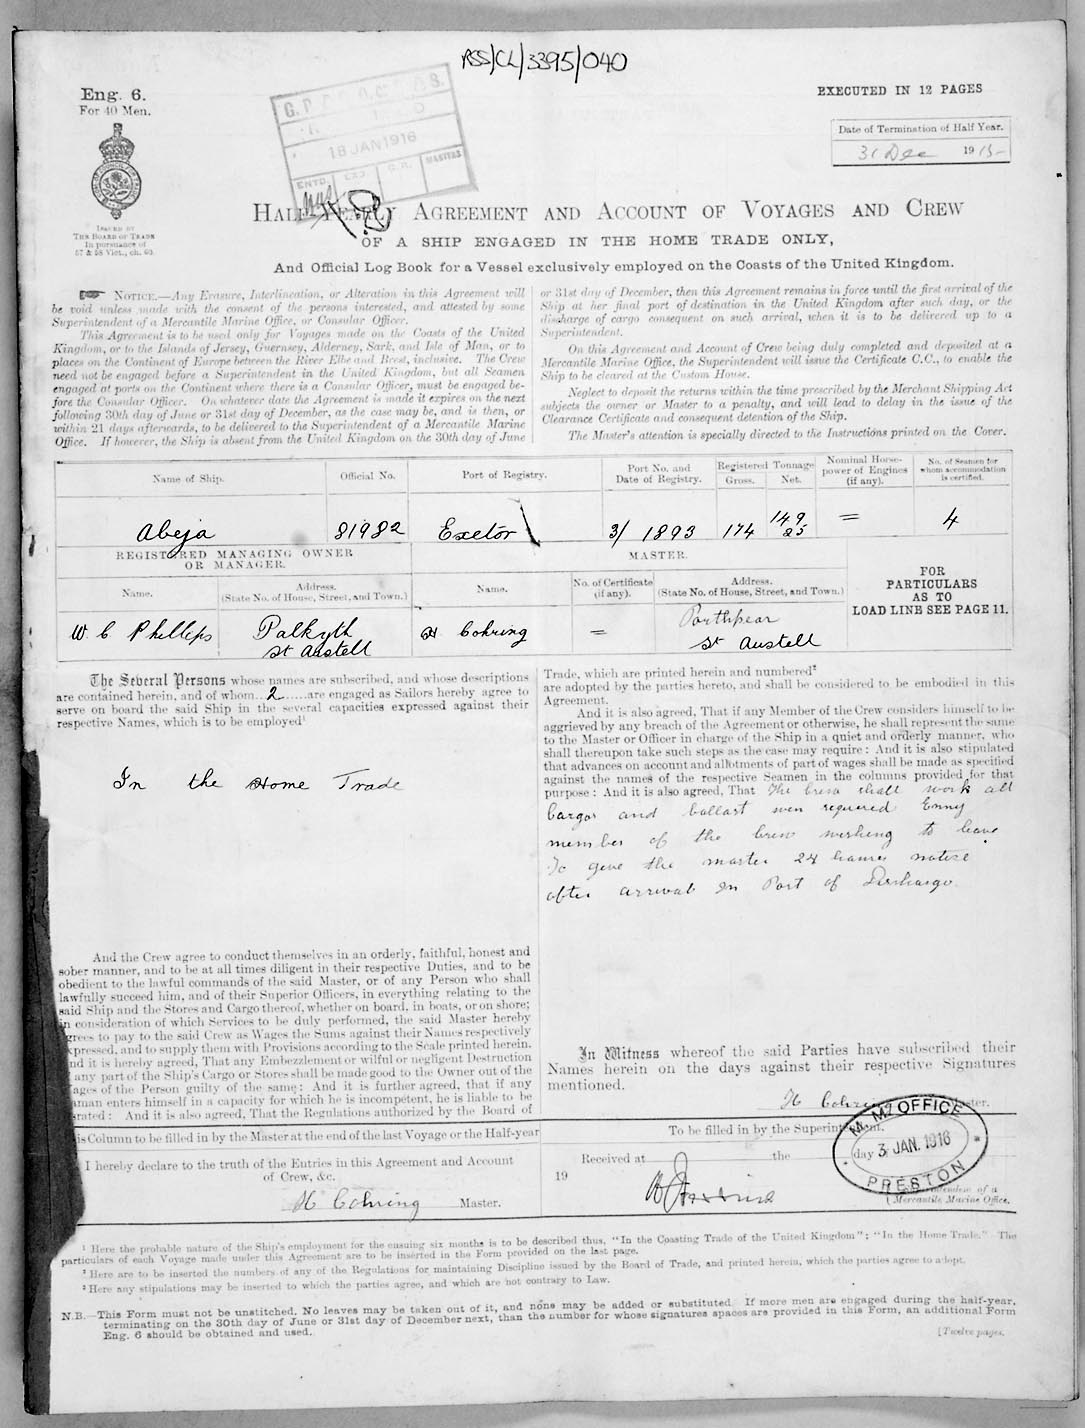 RSS/CL/3395/040
Eng. 6.
For 40 Men.
ISSUED BY
THE BOARD OF TRADE
In pursuance of
57 & 58 Vict., ch. 60.
18 JAN 1916
ENTD.
C.R.
MASTERS
EXECUTED IN 12 PAGES
Date of Termination of Half Year.
31 Dec 1915
HALF YEARLY AGREEMENT AND ACCOUNT OF VOYAGES AND CREW
OF A SHIP ENGAGED IN THE HOME TRADE ONLY,
And Official Log Book for a Vessel exclusively employed on the Coasts of the United Kingdom.
NOTICE.—Any Erasure, Interlineation, or Alteration in this Agreement will
be void unless made with the consent of the persons interested, and attested by some
Superintendent of a Mercantile Marine Office, or Consular Officer.
This Agreement is to be used only for Voyages made on the Coasts of the United
Kingdom, or to the Islands of Jersey, Guernsey, Alderney, Sark, and Isle of Man, or to
places on the Continent of Europe between the River Elbe and Brest, inclusive. The Crew
need not be engaged before a Superintendent in the United Kingdom, but all Seamen
engaged at ports on the Continent where there is a Consular Officer, must be engaged be-
fore the Consular Officer. On whatever date the Agreement is made it expires on the next
following 30th day of June or 31st day of December, as the case may be, and is then, or
within 21 days afterwards, to be delivered to the Superintendent of a Mercantile Marine
Office. If however, the Ship is absent from the United Kingdom on the 30th day of June
or 31st day of December, then this Agreement remains in force until the first arrival of the
Ship at her final port of destination in the United Kingdom after such day, or the
discharge of cargo consequent on such arrival, when it is to be delivered up to a
Superintendent.
On this Agreement and Account of Crew being duly completed and deposited at a
Mercantile Marine Office, the Superintendent will issue the Certificate C.C., to enable the
Ship to be cleared at the Custom House.
Neglect to deposit the returns within the time prescribed by the Merchant Shipping Act
subjects the owner or Master to a penalty, and will lead to delay in the issue of the
Clearance Certificate and consequent detention of the Ship.
The Master's attention is specially directed to the Instructions printed on the Cover.
Name of Ship. Official No. Port of Registry. Port No. and Date of Registry. Registered Tonnage Gross. Net. Nominal Horse-power of Engines (if any). No. of Seamen for whom accommodation is certified.
Abeja 81982 Exeter 3/ 1893 174 149 25 = 4
REGISTERED MANAGING OWNER OR MANAGER.
MASTER.
Name. Address. (State No. of House, Street, and Town.) Name. No. of Certificate (if any). Address. (State No. of House, Street, and Town.)
FOR
PARTICULARS
AS TO
LOAD LINE SEE PAGE 11.
W. C Phillips Palkyth St Austell H Cohring = Porthpean St Austell
The Several Persons whose names are subscribed, and whose descriptions
are contained herein, and of whom 2 are engaged as Sailors hereby agree to
serve on board the said Ship in the several capacities expressed against their
respective Names, which is to be employed¹
In the Home Trade
And the Crew agree to conduct themselves in an orderly, faithful, honest and
sober manner, and to be at all times diligent in their respective Duties, and to be
obedient to the lawful commands of the said Master, or of any Person who shall
lawfully succeed him, and of their Superior Officers, in everything relating to the
said Ship and the Stores and Cargo thereof, whether on board, in boats, or on shore;
in consideration of which Services to be duly performed, the said Master hereby
grees to pay to the said Crew as Wages the Sums against their Names respectively
xpressed, and to supply them with Provisions according to the Scale printed herein.
nd it is hereby agreed, That any Embezzlement or wilful or negligent Destruction
any part of the Ship's Cargo or Stores shall be made good to the Owner out of the
ages of the Person guilty of the same: And it is further agreed, that if any
aman enters himself in a capacity for which he is incompetent, he is liable to be
rated: And it is also agreed, That the Regulations authorized by the Board of
Trade, which are printed herein and numbered²
are adopted by the parties hereto, and shall be considered to be embodied in this
Agreement.
And it is also agreed, That if any Member of the Crew considers himself to be
aggrieved by any breach of the Agreement or otherwise, he shall represent the same
to the Master or Officer in charge of the Ship in a quiet and orderly manner, who
shall thereupon take such steps as the case may require: And it is also stipulated
that advances on account and allotments of part of wages shall be made as specified
against the names of the respective Seamen in the columns provided for that
purpose: And it is also agreed, That The Crew shall work all
Cargos and ballast wen required Enny
member of the Crew wishing to leave
To give the master 24 houres notise
after arrival in Port of Discharge
In Witness whereof the said Parties have subscribed their
Names herein on the days against their respective Signatures
mentioned.
H Cohring Master.
is Column to be filled in by the Master at the end of the last Voyage or the Half-year
I hereby declare to the truth of the Entries in this Agreement and Account
of Crew, &c.
H Cohring Master.
To be filled in by the Superintendent.
Received at the day
19
M. M. OFFICE
3 JAN. 1916
PRESTON
Superintendent of a
Mercantile Marine Office.
¹ Here the probable nature of the Ship's employment for the ensuing six months is to be described thus, "In the Coasting Trade of the United Kingdom"; "In the Home Trade." The
particulars of each Voyage made under this Agreement are to be inserted in the Form provided on the last page.
² Here are to be inserted the numbers of any of the Regulations for maintaining Discipline issued by the Board of Trade, and printed herein, which the parties agree to adopt.
³ Here any stipulations may be inserted to which the parties agree, and which are not contrary to Law.
N.B.—This Form must not be unstitched. No leaves may be taken out of it, and none may be added or substituted. If more men are engaged during the half-year,
terminating on the 30th day of June or 31st day of December next, than the number for whose signatures spaces are provided in this Form, an additional Form
Eng. 6 should be obtained and used.
[Twelve pages.